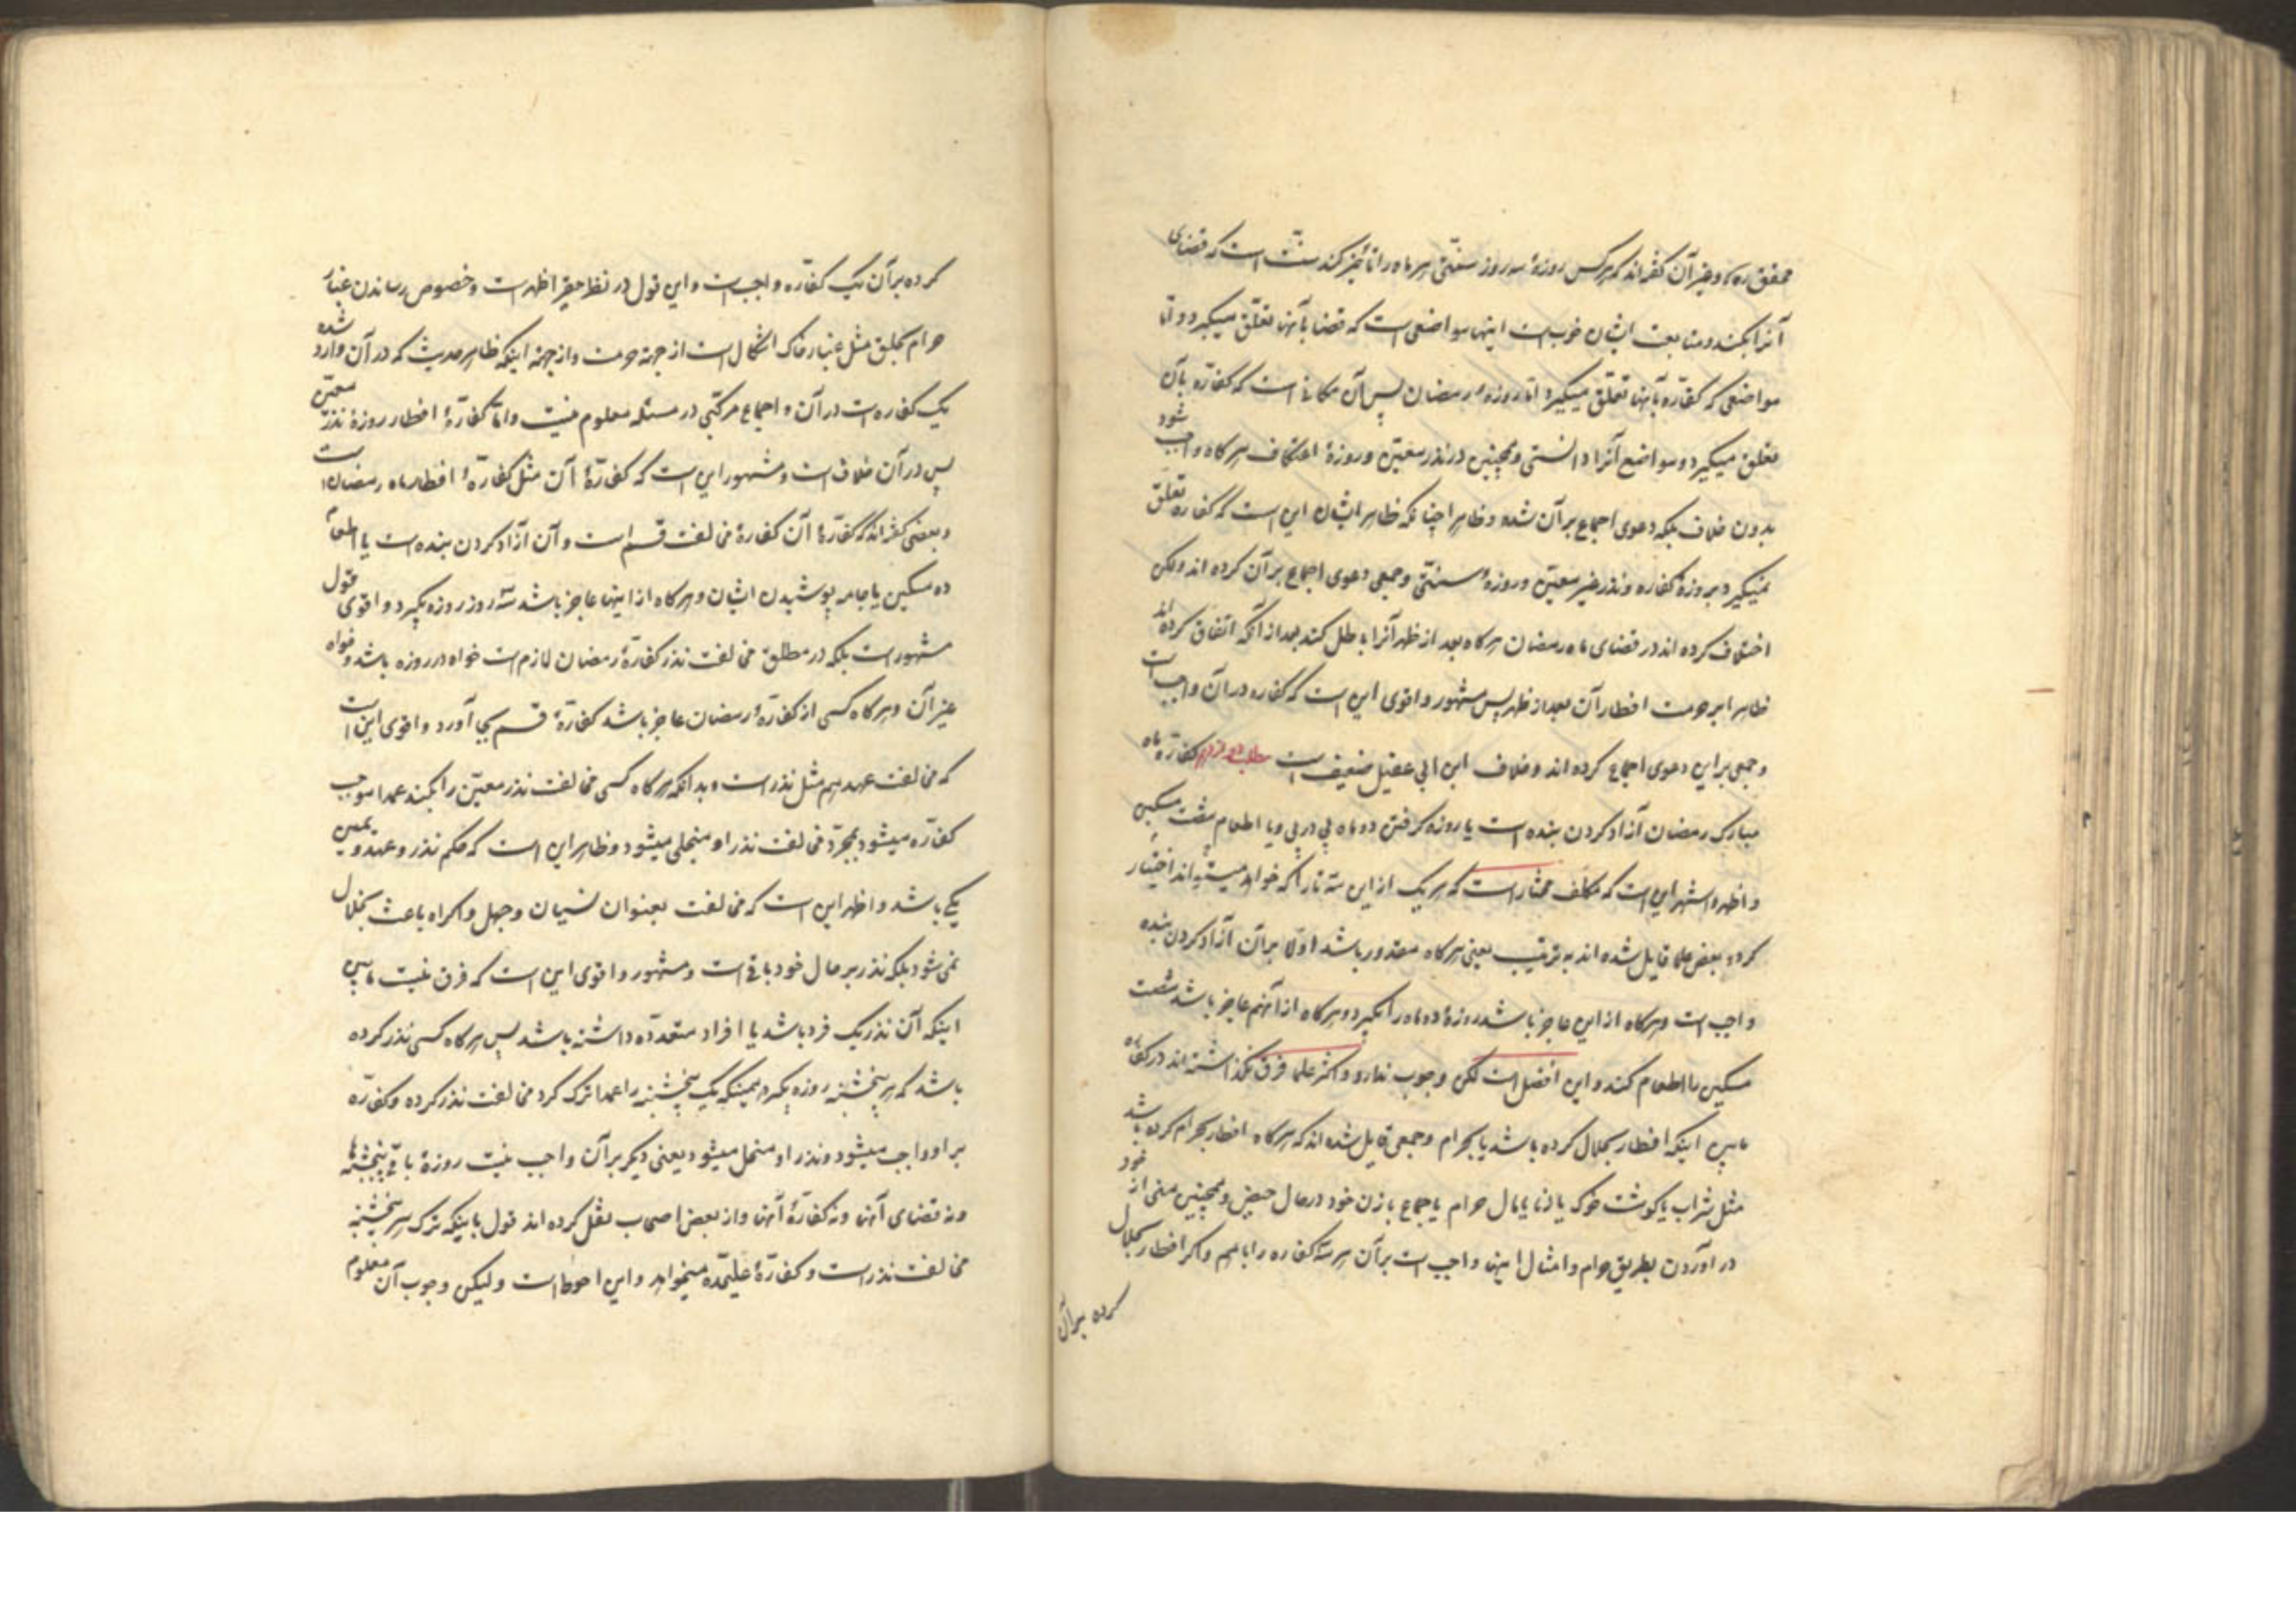 محقق ره و غیر آن گفته‌اند که هر کس روزهٔ سه روز سنّتی هر ماه را تأخیر کند سنّت است که قضای
آنرا بکند و متابعت ایشان خوب است اینها مواضعی است که قضا بآنها تعلّق میگیرد و امّا
مواضعی که کفّاره بآنها تعلّق میگیرد امّا روزهٔ رمضان پس آن مکانی است که کفّاره بآن
تعلق میگیرد و مواضع آنرا دانستی و همچنین در نذر معیّن و روزهٔ اعتکاف هر کاه واجب شود
بدون خلاف بلکه دعوی اجماع بر آن شده و ظاهرا چنانکه ظاهر ایشان این است که کفاره تعلّق
نمیگیرد بروزهٔ کفاره و نذر غیر معیّن و روزهٔ سنّتی و جمعی دعوی اجماع بر آن کرده اند ولکن
اختلاف کرده اند در قضای ماه رمضان هر کاه بعد از ظهر آنرا باطل کند بعد از آنکه اتفاق کرده اند
ظاهرا بر حرمت افطار آن بعد از ظهر پس مشهور و اقوی این است که کفاره در آن واجب است
و جمعی بر این دعوی اجماع کرده اند و خلاف ابن ابی عقیل ضعیف است کفّاره ماه
مبارک رمضان آزاد کردن بنده است یا روزه کرفتن دو ماه پی در پی و یا اطعام شصت مسکین
و اظهر و اشهر این است که مکلّف مختار است که هر یک از این سه تا را که خواهد میتواند اختیار
کرد و بعض علما قایل شده اند به ترتیب یعنی هر کاه مقدور باشد اوّلا بر آن آزاد کردن بنده
واجب است و هر کاه از این عاجز باشد روزهٔ دو ماه را بگیرد و هر کاه از آنهم عاجز باشد شصت
مسکین را اطعام کند و این افضل است لکن وجوب ندارد و اکثر علما فرق نگذاشته اند در کفّاره
مابین اینکه افطار بحلال کرده باشد یا بحرام و جمعی قایل شده اند که هر کاه افطار بحرام کرده باشد
مثل شراب یا کوشت خوک یا زنا یا مال حرام یا جماع با زن خود در حال حیض و همچنین منی از خود
در آوردن بطریق حرام و امثال اینها واجب است بر آن هر سه کفاره را با هم و اکر افطار بحلال
کرده بر آن
کرده بر آن یک کفّاره واجب است و این قول در نظر حقیر اظهر است و خصوص رساندن غبار
حرام بحلق مثل غبار خاک اشکال است از جهة حرمت و از جهة اینکه ظاهر حدیث که در آن وارد شده
یک کفاره است در آن و اجماع مرکّبی در مسئله معلوم نیست و امّا کفّارهٔ افطار روزهٔ نذر معیّن
پس در آن خلاف است و مشهور این است که کفّارهٔ آن مثل کفّارهٔ افطار ماه رمضان است
و بعضی گفته‌اند که کفّارهٔ آن کفارهٔ مخالفت قسم است و آن آزاد کردن بنده است یا اطعام
ده مسکین یا جامه پوشیدن ایشان و هر کاه از اینها عاجز باشد سه روز روزه بگیرد و اقوی قول
مشهور است بلکه در مطلق مخالفت نذر کفارهٔ رمضان لازم است خواه در روزه باشد و خواه
غیر آن و هر کاه کسی از کفارهٔ رمضان عاجز باشد کفارهٔ قسم بجای آورد و اقوی این است
که مخالفت عهد هم مثل نذر است و بدانکه هر کاه کسی مخالفت نذر معیّن را بکند عمدا موجب
کفّاره میشود بمجرّد مخالفت نذر او منحلّ میشود و ظاهر این است که حکم نذر و عهد و یمین
یکی باشد و اظهر این است که مخالفت بعنوان نسیان و جهل و اکراه باعث انحلال
نمی شود بلکه نذر بر حال خود باقی است و مشهور و اقوی این است که فرق نیست مابین
اینکه آن نذر یک فرد باشد یا افراد متعدّده داشته باشد پس هر کاه کسی نذر کرده
باشد که هر پنجشنبه روزه بگیرد همینکه یک پنجشنبه را عمدا ترک کرد مخالفت نذر کرده و کفّاره
بر او واجب میشود و نذر او منحل میشود یعنی دیکر بر آن واجب نیست روزهٔ باقی پنجشنبه ها
و نه قضای آنها و نه کفّارهٔ آنها و از بعض اصحاب نقل کرده اند قول باینکه ترک هر پنجشنبه
مخالفت نذر است و کفّارهٔ علیحده میخواهد و این احوط است ولیکن وجوب آن معلوم